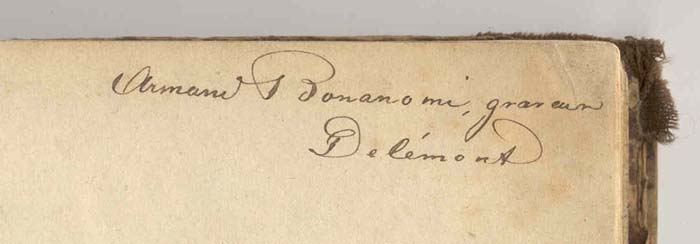 Armand Bonanomi, graveur
Delémont